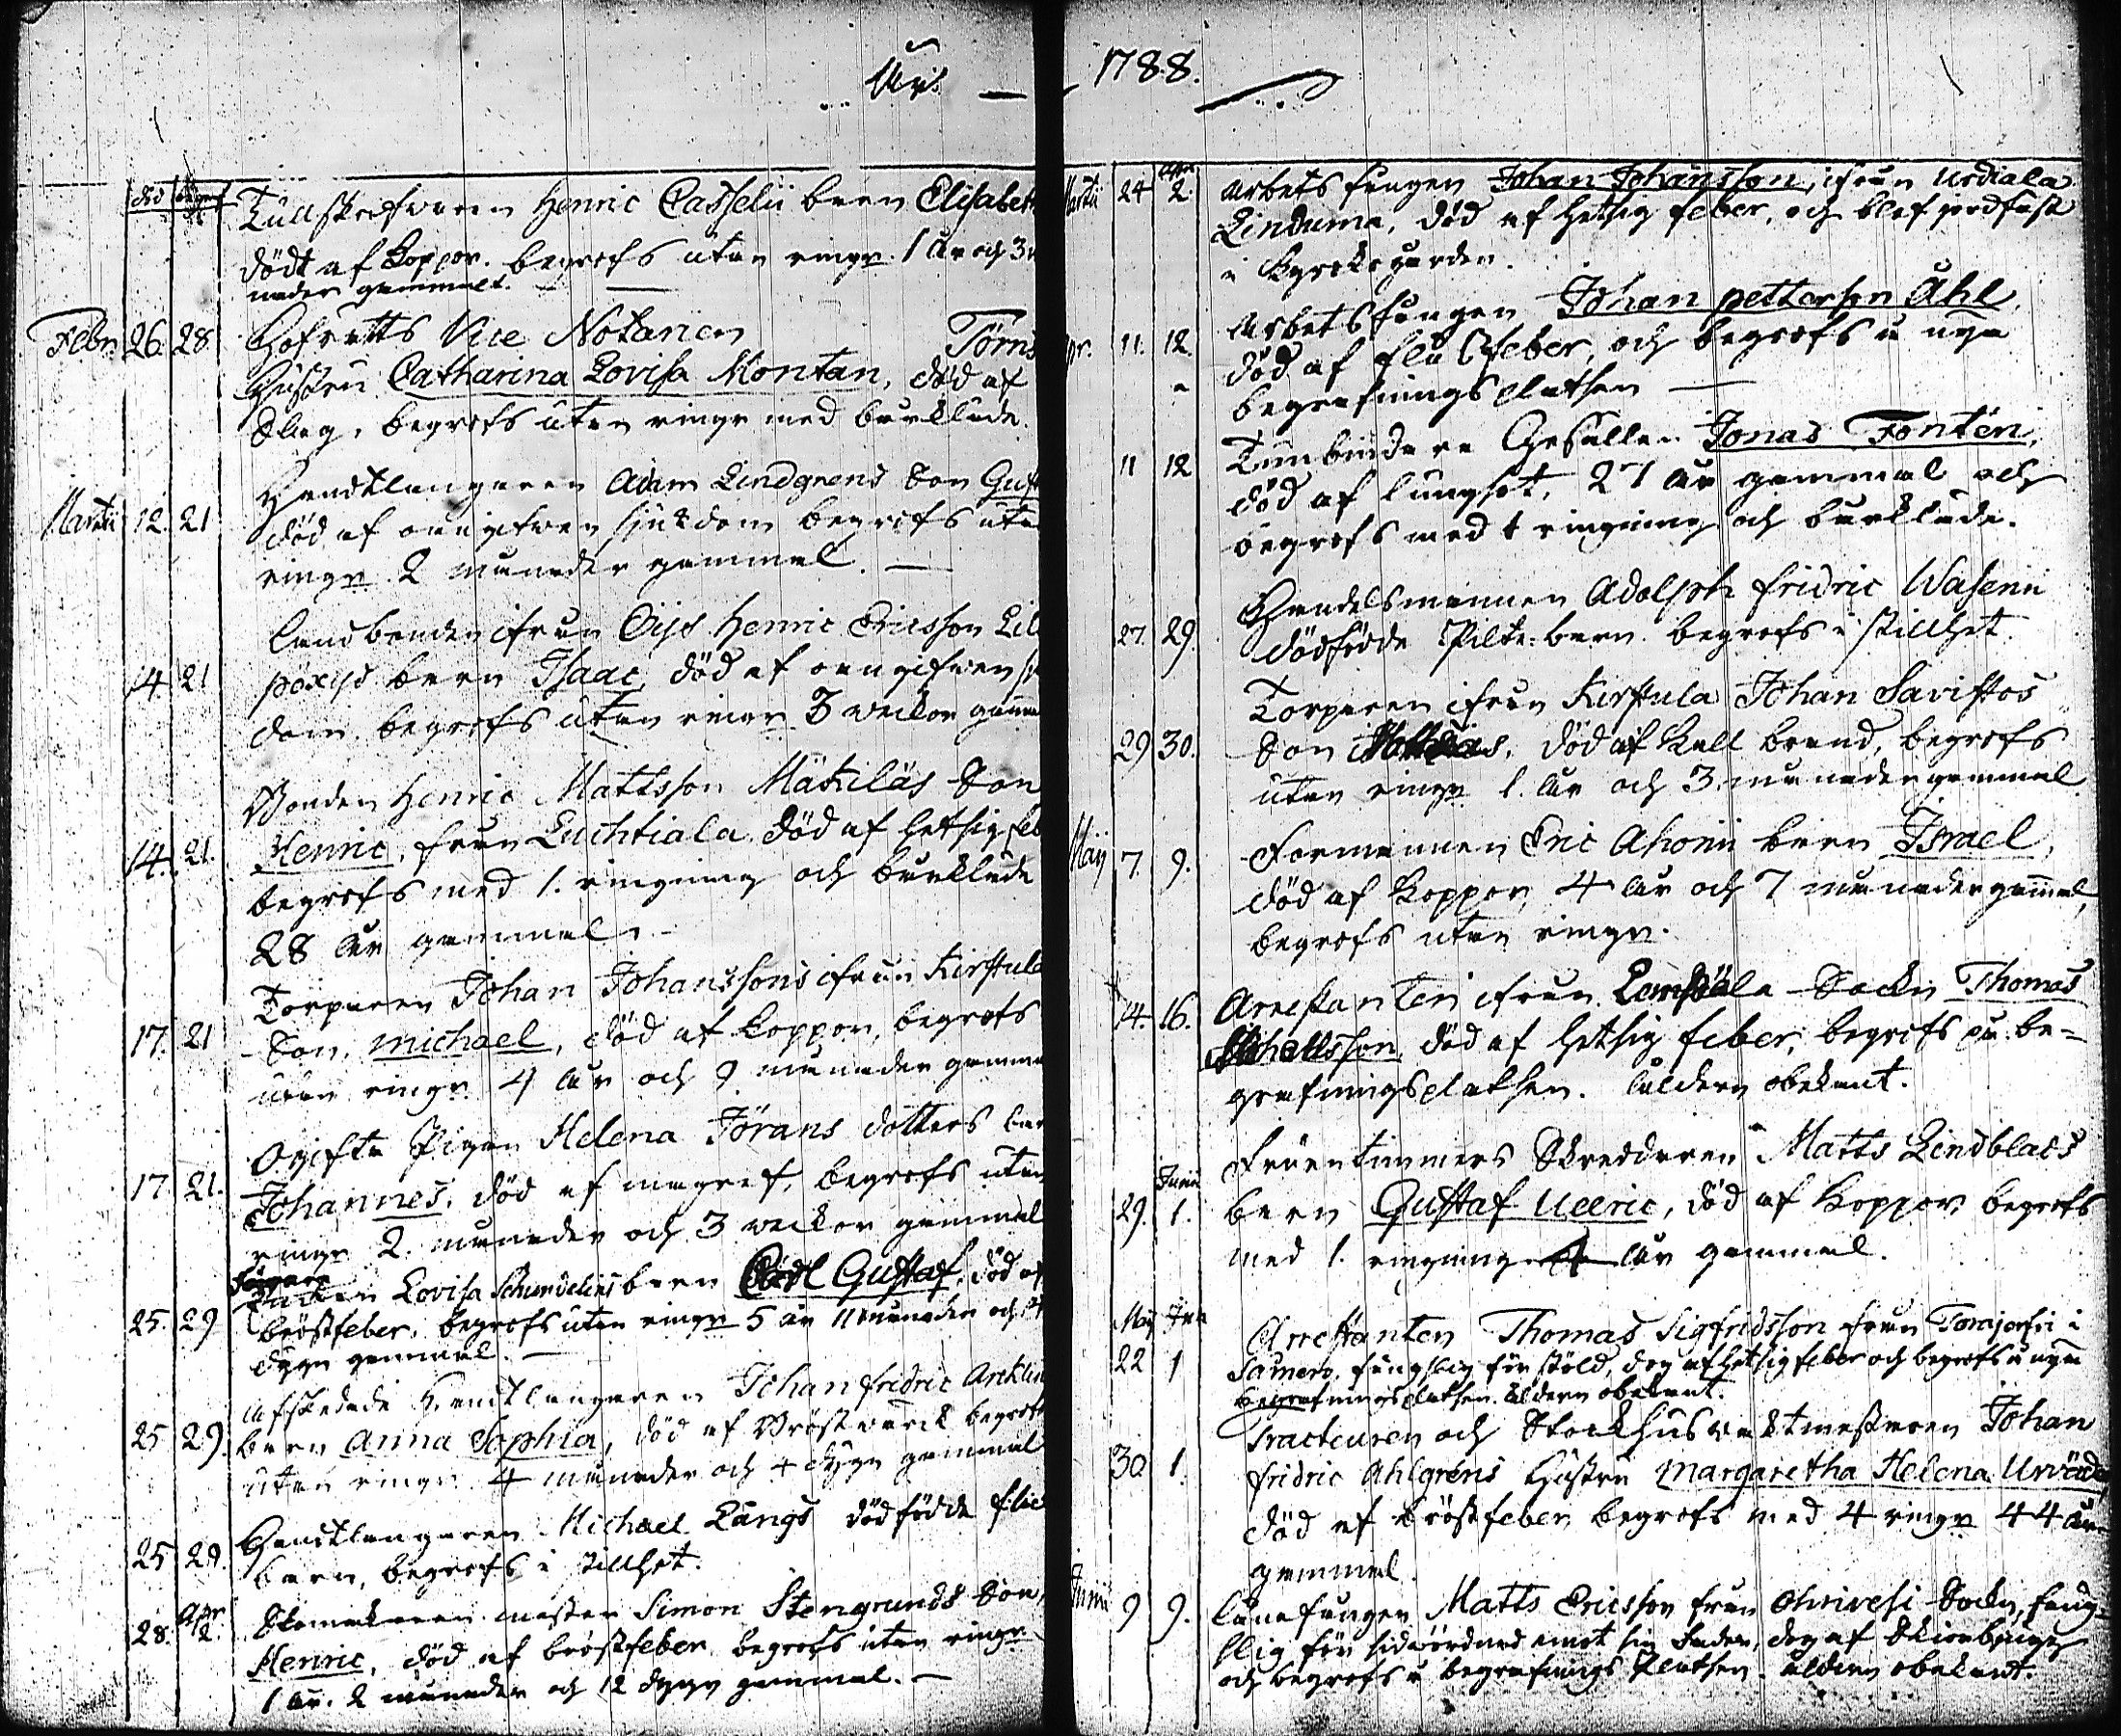 åhr 1788.
död begr.
Tullskrifwaren Henric Casselii barn Elisabeth
dödt af Koppor. begrofs utan ringn. 1 år och 3
nader gammalt.
Febr. 26. 28. Hofrätts Vice Notarien Törn
Hustru Catharina Lovisa Montan, död af
Slag, begrofs utan ringn med bårkläde.
Handtlangaren Adam Lindgrens Son Gust
Martii 12. 21 död af oangifwen sjukdom begrofs utan
ringn 2 månader gammal.
Landbonden ifrån Henric Ericsson Lil
14. 21 barn Isaac, död af oangifwen
dom, begrofs utan ringn 3 weckor gamm
Bonden Henric Mattsson Mäkiläs Son
14. 21. Henric, från Luchtiala, död af hetsig feb
begrofs med 1. ringning och bårkläde
28 år gammal.
Torparen Johan Johanssons ifrån Kirstula
17. 21 Son, Michael, död af koppor, begrofs
utan ringn 4 år och 9 månader gamma
Ogifte Pigan Helena Jörans dotters bar
17. 21. Johannes, död af begrofs utan
ringn 2 månader och 3 weckor gammal
Lovisa barn Carl Gustaf, död af
25. 29 bröstfeber, begrofs utan ringn 5 år 11 månader och
dygn gammal.
Afskedade Handtlangaren Johan Fridric
25 29. barn Anna Sophia, död af Bröstwärck begrofs
utan ringn 4 månader och 4 dygn gammal
Handtlangaren Michael Längs dödfödde flic
25 29. barn, begrofs i stillhet.
Apr
28. 2. Skomakaren mäster Simon Stengrunds Son,
Henric, död af bröstfeber begrofs utan ringn
1 år. 2 månader och 12 dygn gammal.
Apr
Martii 24 2. Arbets fången Johan Johansson, ifrån Urdiala
Linduma, död af hetsig feber, och blef jordfäst
i Kyrkogården.
Arbetsfången Johan Petterson Åhl
pr. 11. 12. död af feber, och begrofs å nya
begrafnings platsen
11 12 Tunnbindare Gesällen Jonas Fontén,
död af lungsot, 27 år gammal och
begrofs med 1 ringning och bårkläde.
Handelsmannen Adolph Fridric Wasenii
27. 29. dödfödde Pilte barn begrofs i stillhet.
Torparen ifrån Kirstula Johan Savistos
29 30. Son Matthias, död af Kall brand, begrofs
utan ringn 1. år och 3. månader gammal
Maij 7. 9. Formannen Eric Ahonii barn Israel,
död af koppor, 4 år och 7 månader gammal,
begrofs utan ringn.
14. 16. Arrestanten ifrån Sockn Thomas
Michellsson död af hetsig feber, begrofs på be=
grafningsplatsen. Åldern obekant.
Fruentimmers Skräddaren Matts Lindblads
Junii
29. 1. barn Gustaf Ulric, död af koppor, begrofs
med 1. ringning år gammal.
Maij Jun
22 1 Arrestanten Thomas Sigfridsson från i
fängslig för stöld, dog af hetsig feber och begrofs å nya
begrafningsplatsen. Åldern obekant.
Tracteuren och Stockhus waktmästaren Johan
30. 1. Fridric Ahlgréns Hustru Margaretha Helena
död af bröstfeber, begrofs med 4 ringn 44 år
gammal.
Junii 9 9. Matts Ericsson från Ohrivesi Sockn, fäng-
slig för emot sin fader, dog af Skiörbjugg
och begrofs å begrafnings Platsen. Åldern obekant.